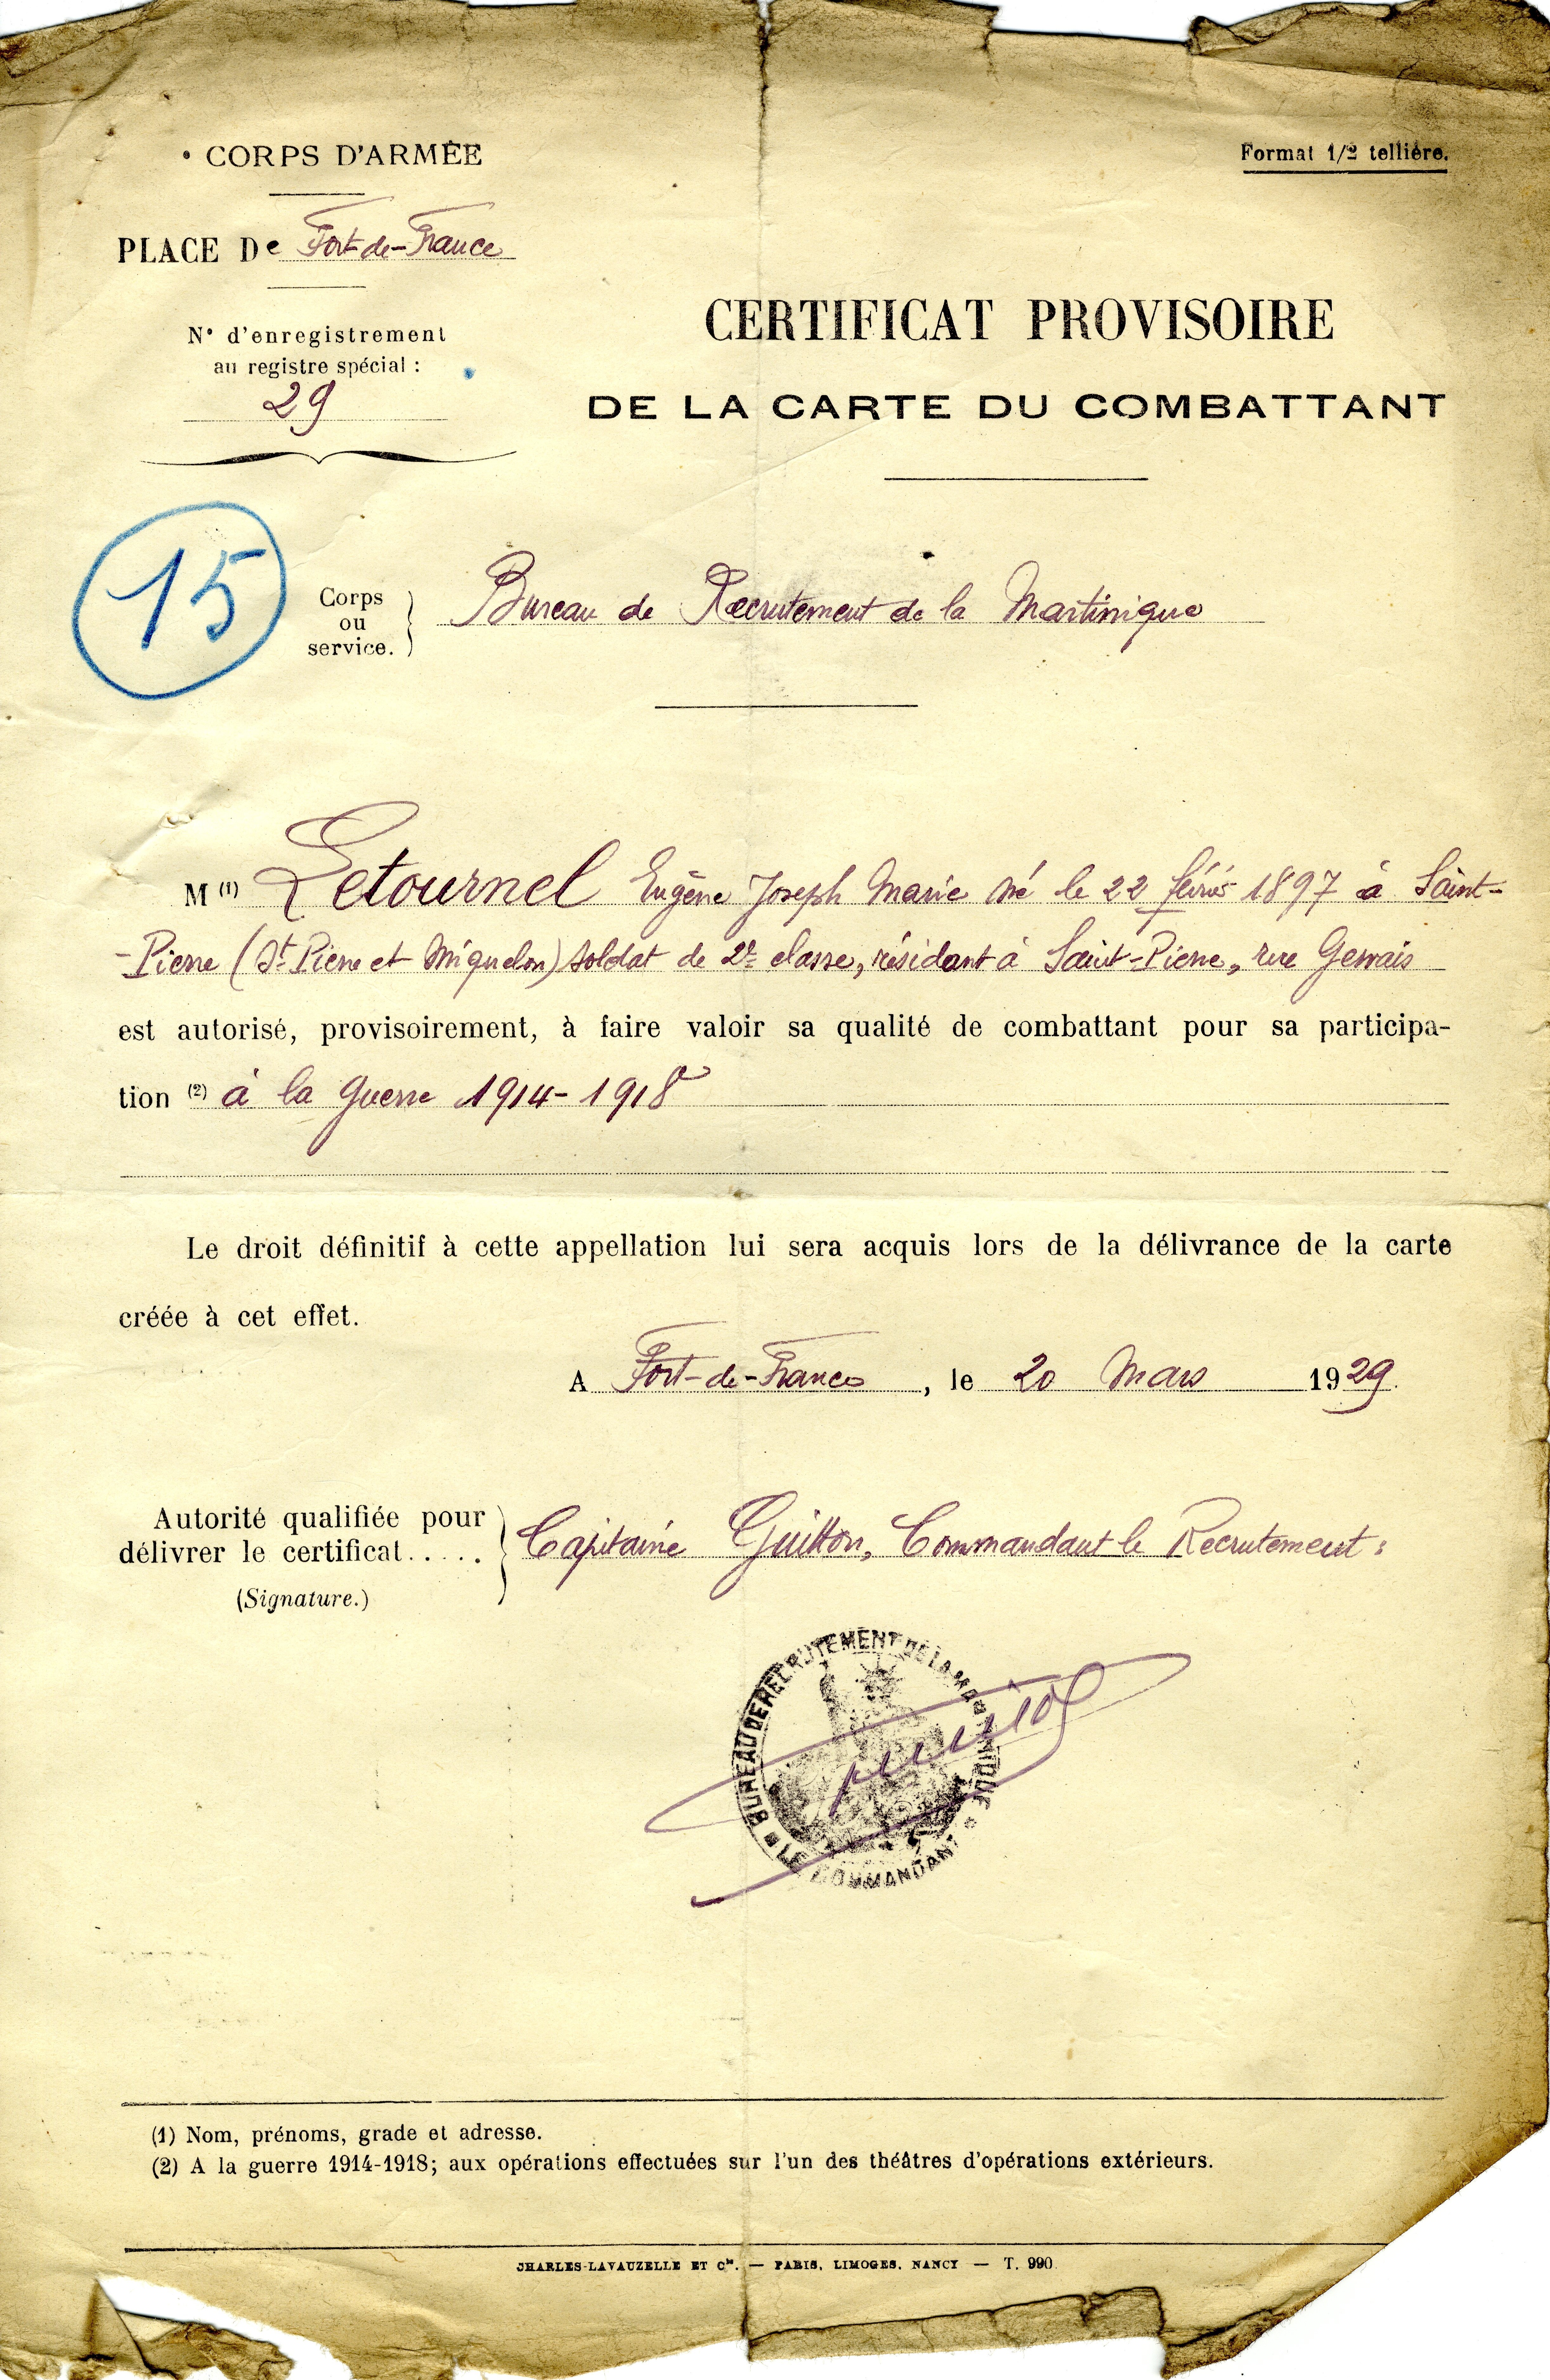 • CORPS D'ARMÉE
Format 1/2 tellière.
PLACE De Fort-de-France
N° d'enregistrement
au registre spécial :
29
CERTIFICAT PROVISOIRE
DE LA CARTE DU COMBATTANT
15
Corps
ou
service.
Bureau de Recrutement de la Martinique
M (1) Letournel Eugène Joseph Marie né le 22 février 1897 à Saint-
-Pierre (St Pierre et Miquelon) soldat de 2e classe, résidant à Saint-Pierre, rue Gervais
est autorisé, provisoirement, à faire valoir sa qualité de combattant pour sa participa-
tion (2) à la guerre 1914-1918
Le droit définitif à cette appellation lui sera acquis lors de la délivrance de la carte
créée à cet effet.
A Fort-de-France, le 20 Mars 1929.
Autorité qualifiée pour
délivrer le certificat.....
(Signature.)
Capitaine Guitton, Commandant le Recrutement :
BUREAU DE RECRUTEMENT DE LA MARTINIQUE
* LE COMMANDANT *
(1) Nom, prénoms, grade et adresse.
(2) A la guerre 1914-1918; aux opérations effectuées sur l'un des théâtres d'opérations extérieurs.
CHARLES-LAVAUZELLE ET Cie. — PARIS, LIMOGES, NANCY — T. 990